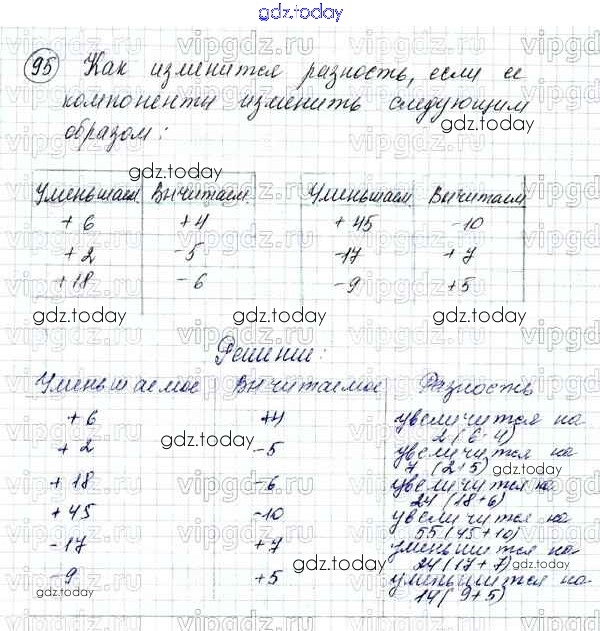 gdz.today
95 Как изменится разность, если ее
компоненты изменить следующим
образом:
gdz.today
gdz.today
Уменьшаем Вычитаем Уменьшаем Вычитаем
+6 +4 +45 -10
+2 -5 -17 +7
+18 -6 -9 +5
gdz.today gdz.today
Решение:
Уменьшаемое Вычитаемое Разность
+6 +4 увеличится на
2 (6-4)
+2 -5 увеличится на
7 (2+5)
+18 -6 увеличится на
24 (18+6)
+45 -10 увеличится на
55 (45+10)
-17 +7 уменьшится на
24 (17+7)
-9 +5 уменьшится на
14 (9+5)
gdz.today
gdz.today
gdz.today
gdz.today
vipgdz.ru